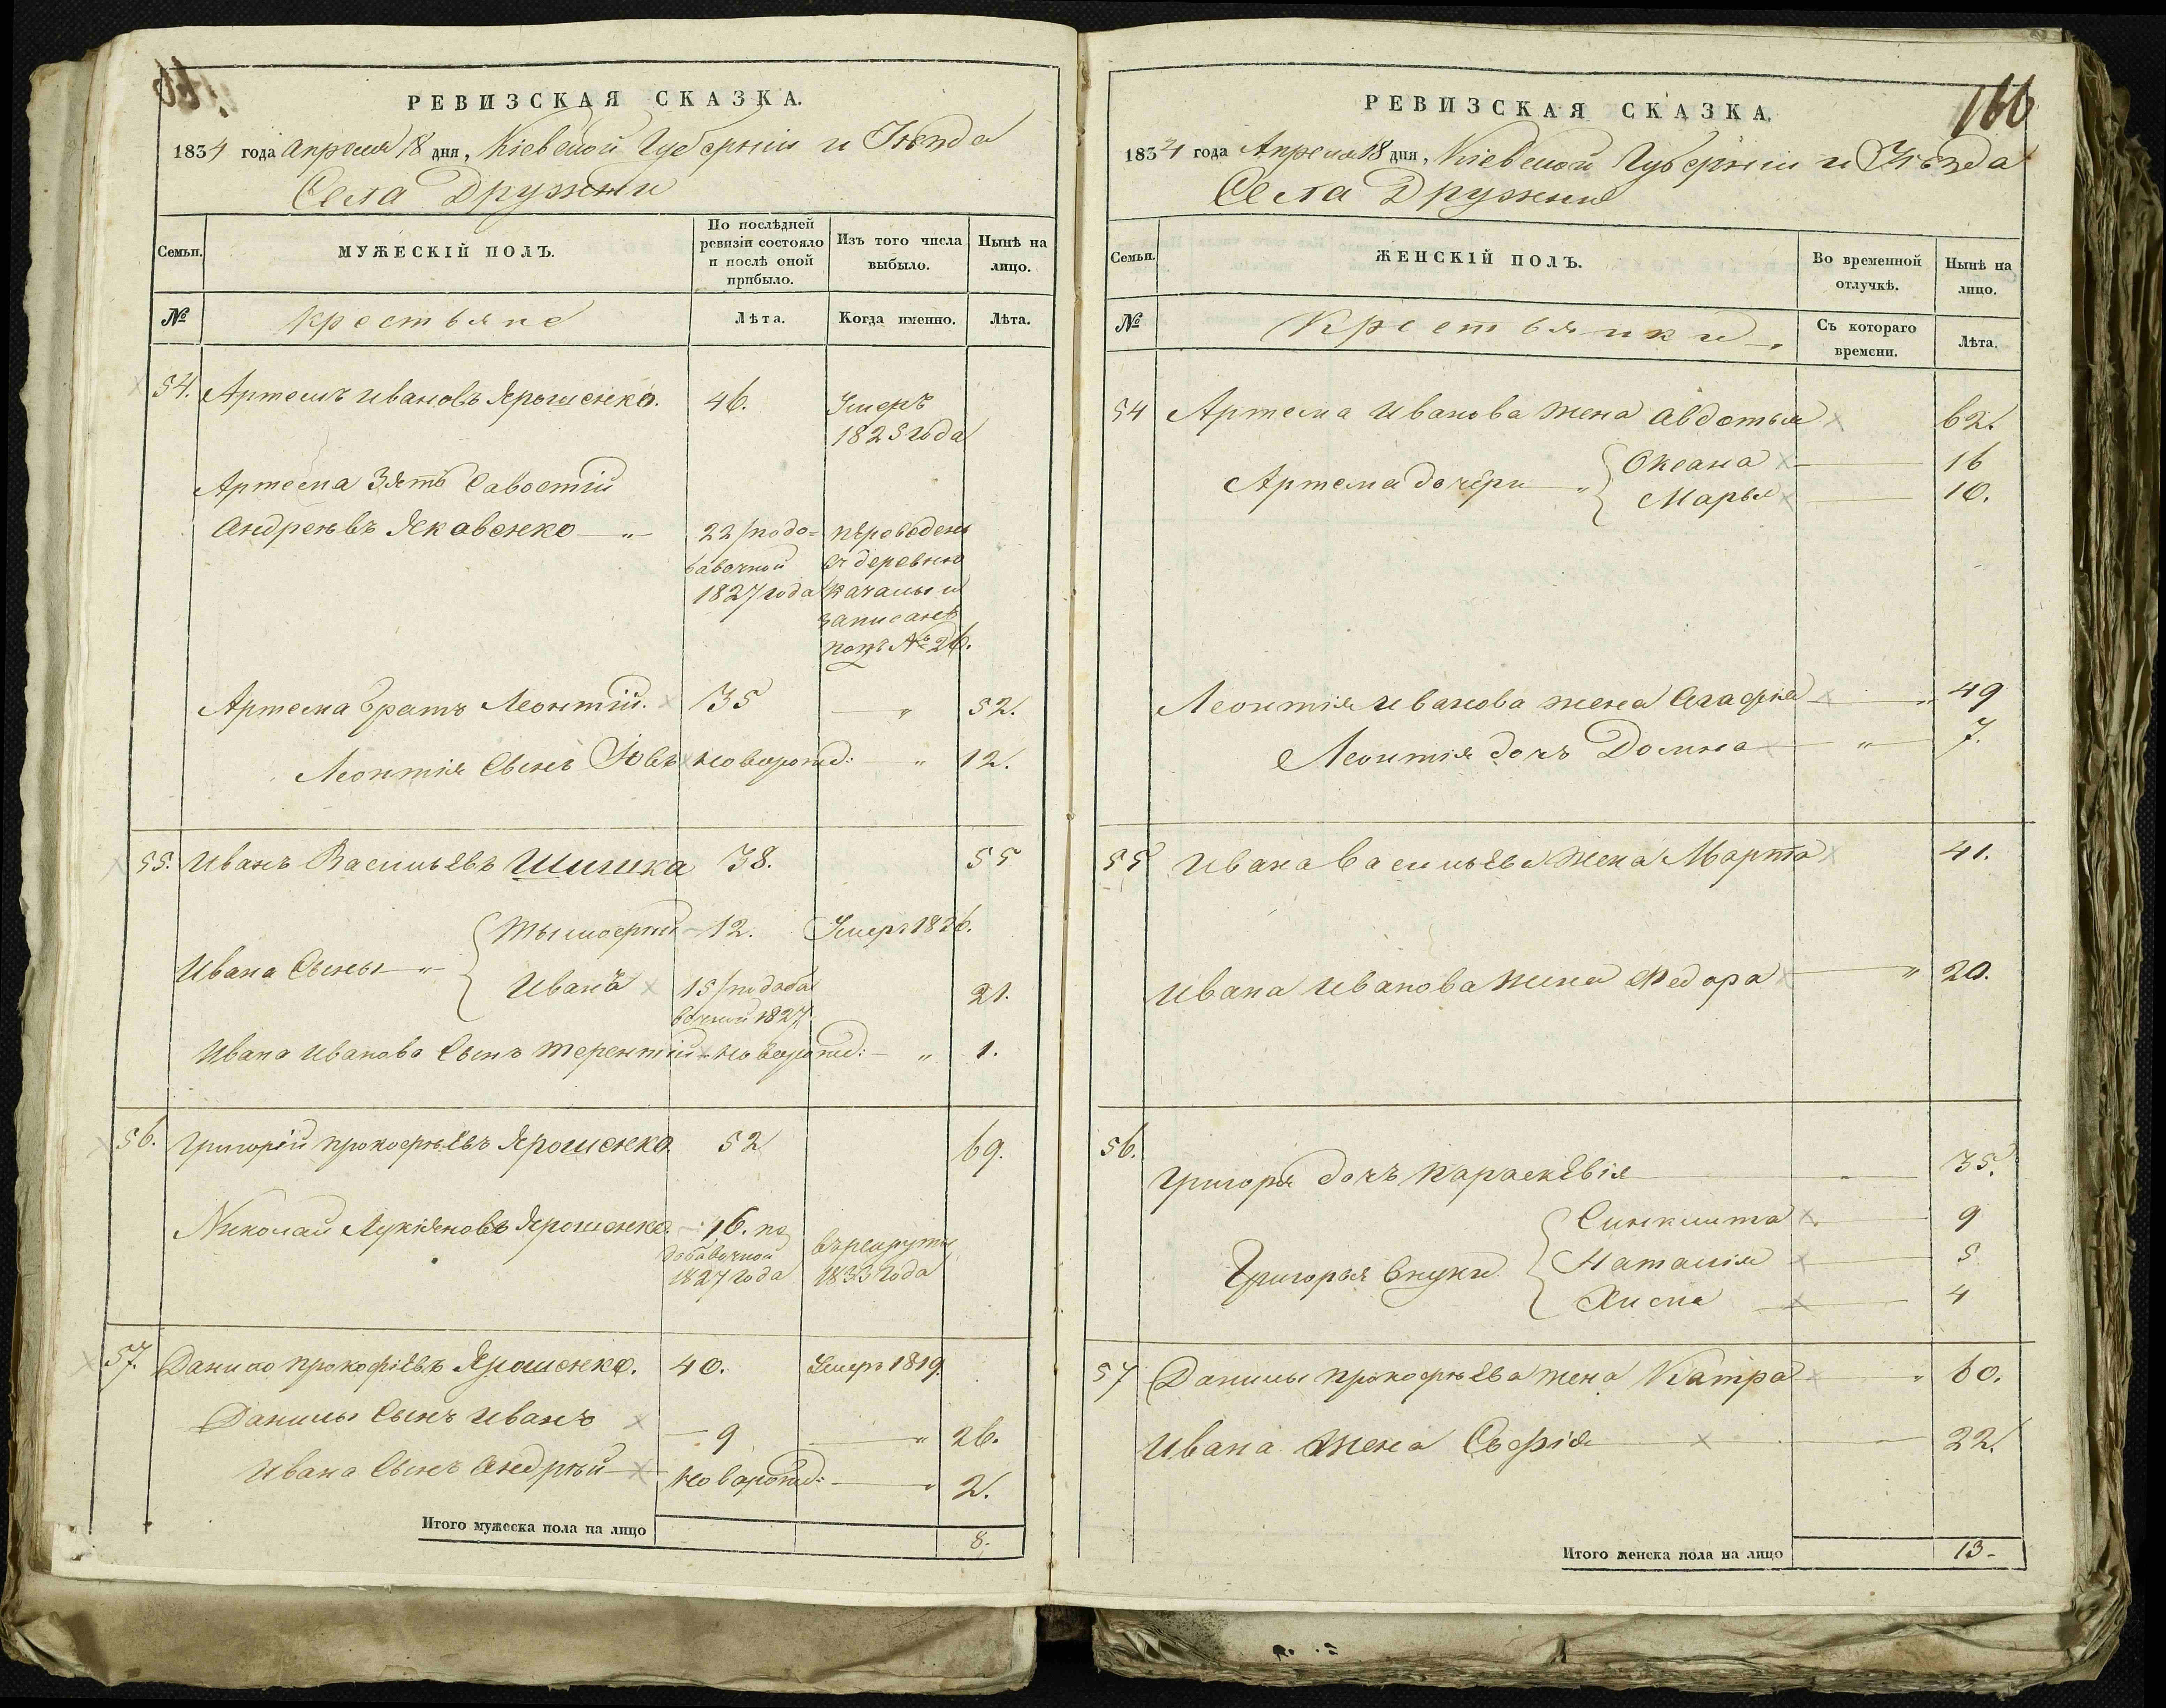 РЕВИЗСКАЯ СКАЗКА.
1834 года апреля 18 дня, Кіевской Губерніи и Уезда
Села Дружни
Семьи.
МУЖЕСКІЙ ПОЛЪ.
По послѣдней ревизіи состояло и послѣ оной прибыло.
Изъ того числа выбыло.
Нынѣ на лицо.
№
крестьяне
Лѣта.
Когда именно.
Лѣта.
54. Артемъ Ивановъ Ярошенко. 46. Умеръ
1825 года
Артема Зять Савостій
Андреевъ Яковенко — „ — 22/по до= переведенъ
бавочной въ деревню
1827 года Качалы и
записанъ
подъ № 26.
Артема братъ Леонтій. 35 — „ 52.
Леонтія Сынъ Іовъ новорожд: — „ 12.
55. Иванъ Васильевъ Шишка 38. 55
Тымофей 12. Умеръ 1826.
Ивана Сыны — „
Иванъ 15/по доба 21.
вочной 1827
Ивана Иванова Сынъ Терентій новорожд: — „ 1.
56. Григорій Прокофьевъ Ярошенко. 52 69.
Николай Лукіяновъ Ярошенко. — 16. по
добавочной въ рекруты
1827 года 1833 года
57. Данило Прокофіевъ Ярошенко. 40. Умеръ 1819.
Данилы Сынъ Иванъ — 9 — „ 26.
Ивана Сынъ Андрей — новорожд: — „ 2.
Итого мужеска пола на лицо 8.
166
РЕВИЗСКАЯ СКАЗКА.
1834 года Апреля 18 дня, Кіевской Губерніи и Уезда
Села Дружни
Семьи.
ЖЕНСКІЙ ПОЛЪ.
Во временной отлучкѣ.
Нынѣ на лицо.
№
Крестьянки
Съ котораго времени.
Лѣта.
54 Артема Иванова жена Авдотья 62.
Оксана — 16
Артема дочери „
Марья — 10.
Леонтія Иванова жена Агафія — „ 49
Леонтія дочь Домна — „ — 7.
55 Ивана Васильева жена Марта 41.
Ивана Иванова жена Федора — „ 20.
56.
Григорія дочь Параскевія — 35.
Синклита — 9
Григорья внуки Наталія — 5
— 4
57 Данилы Прокофьева жена Катра „ 60.
Ивана жена Софія — 22.
Итого женска пола на лицо 13-